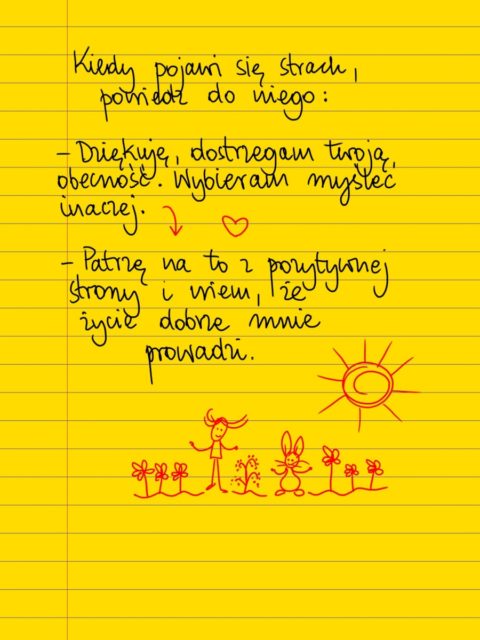 Kiedy pojawi się strach,
powiedz do niego:
- Dziękuję, dostrzegam twoją
obecność. Wybieram myśleć
inaczej.
- Patrzę na to z pozytywnej
strony i wiem, że
życie dobrze mnie
prowadzi.